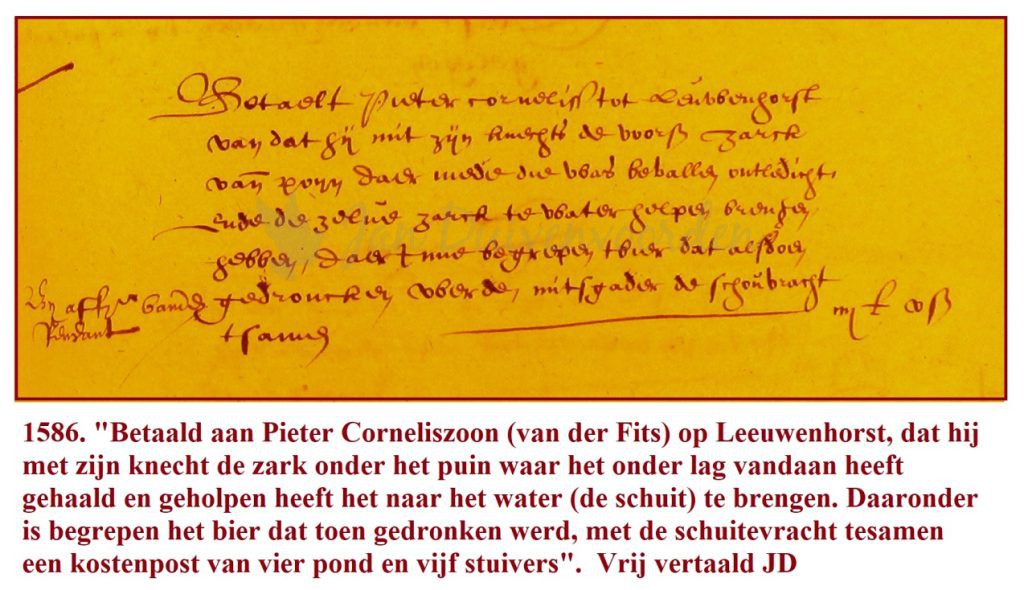 Betaelt Pieter corneliss tot Leuvvenhorst
van dat hij mit zijn knechts de voors zarck
vann poijn daer mede die vvas bevallen ontledicht
Ende die zelve zarck te vvater helpen brengen
hebben, daer inne begrepen tbier dat alsdoen
gedroncken vverden mitsgader de schouvracht
tsamen
Rendant
Jan Duivenvoorden
1586. "Betaald aan Pieter Corneliszoon (van der Fits) op Leeuwenhorst, dat hij
met zijn knecht de zark onder het puin waar het onder lag vandaan heeft
gehaald en geholpen heeft het naar het water (de schuit) te brengen. Daaronder
is begrepen het bier dat toen gedronken werd, met de schuitevracht tesamen
een kostenpost van vier pond en vijf stuivers".  Vrij vertaald JD